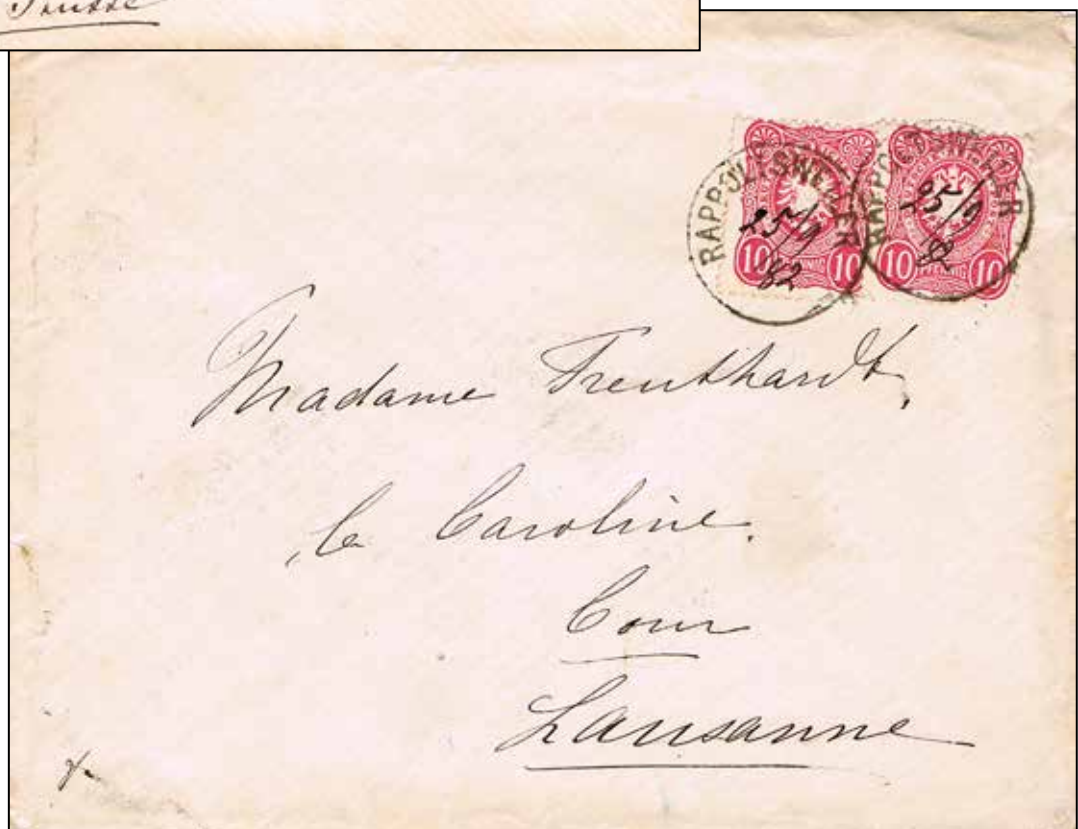 Suisse
RAPPOLTSWEILER
25/9
82
10 PFENNIG 10
RAPPOLTSWEILER
25/9
82
10 PFENNIG 10
Madame Trenkhardt,
la Caroline.
Cour
Lausanne